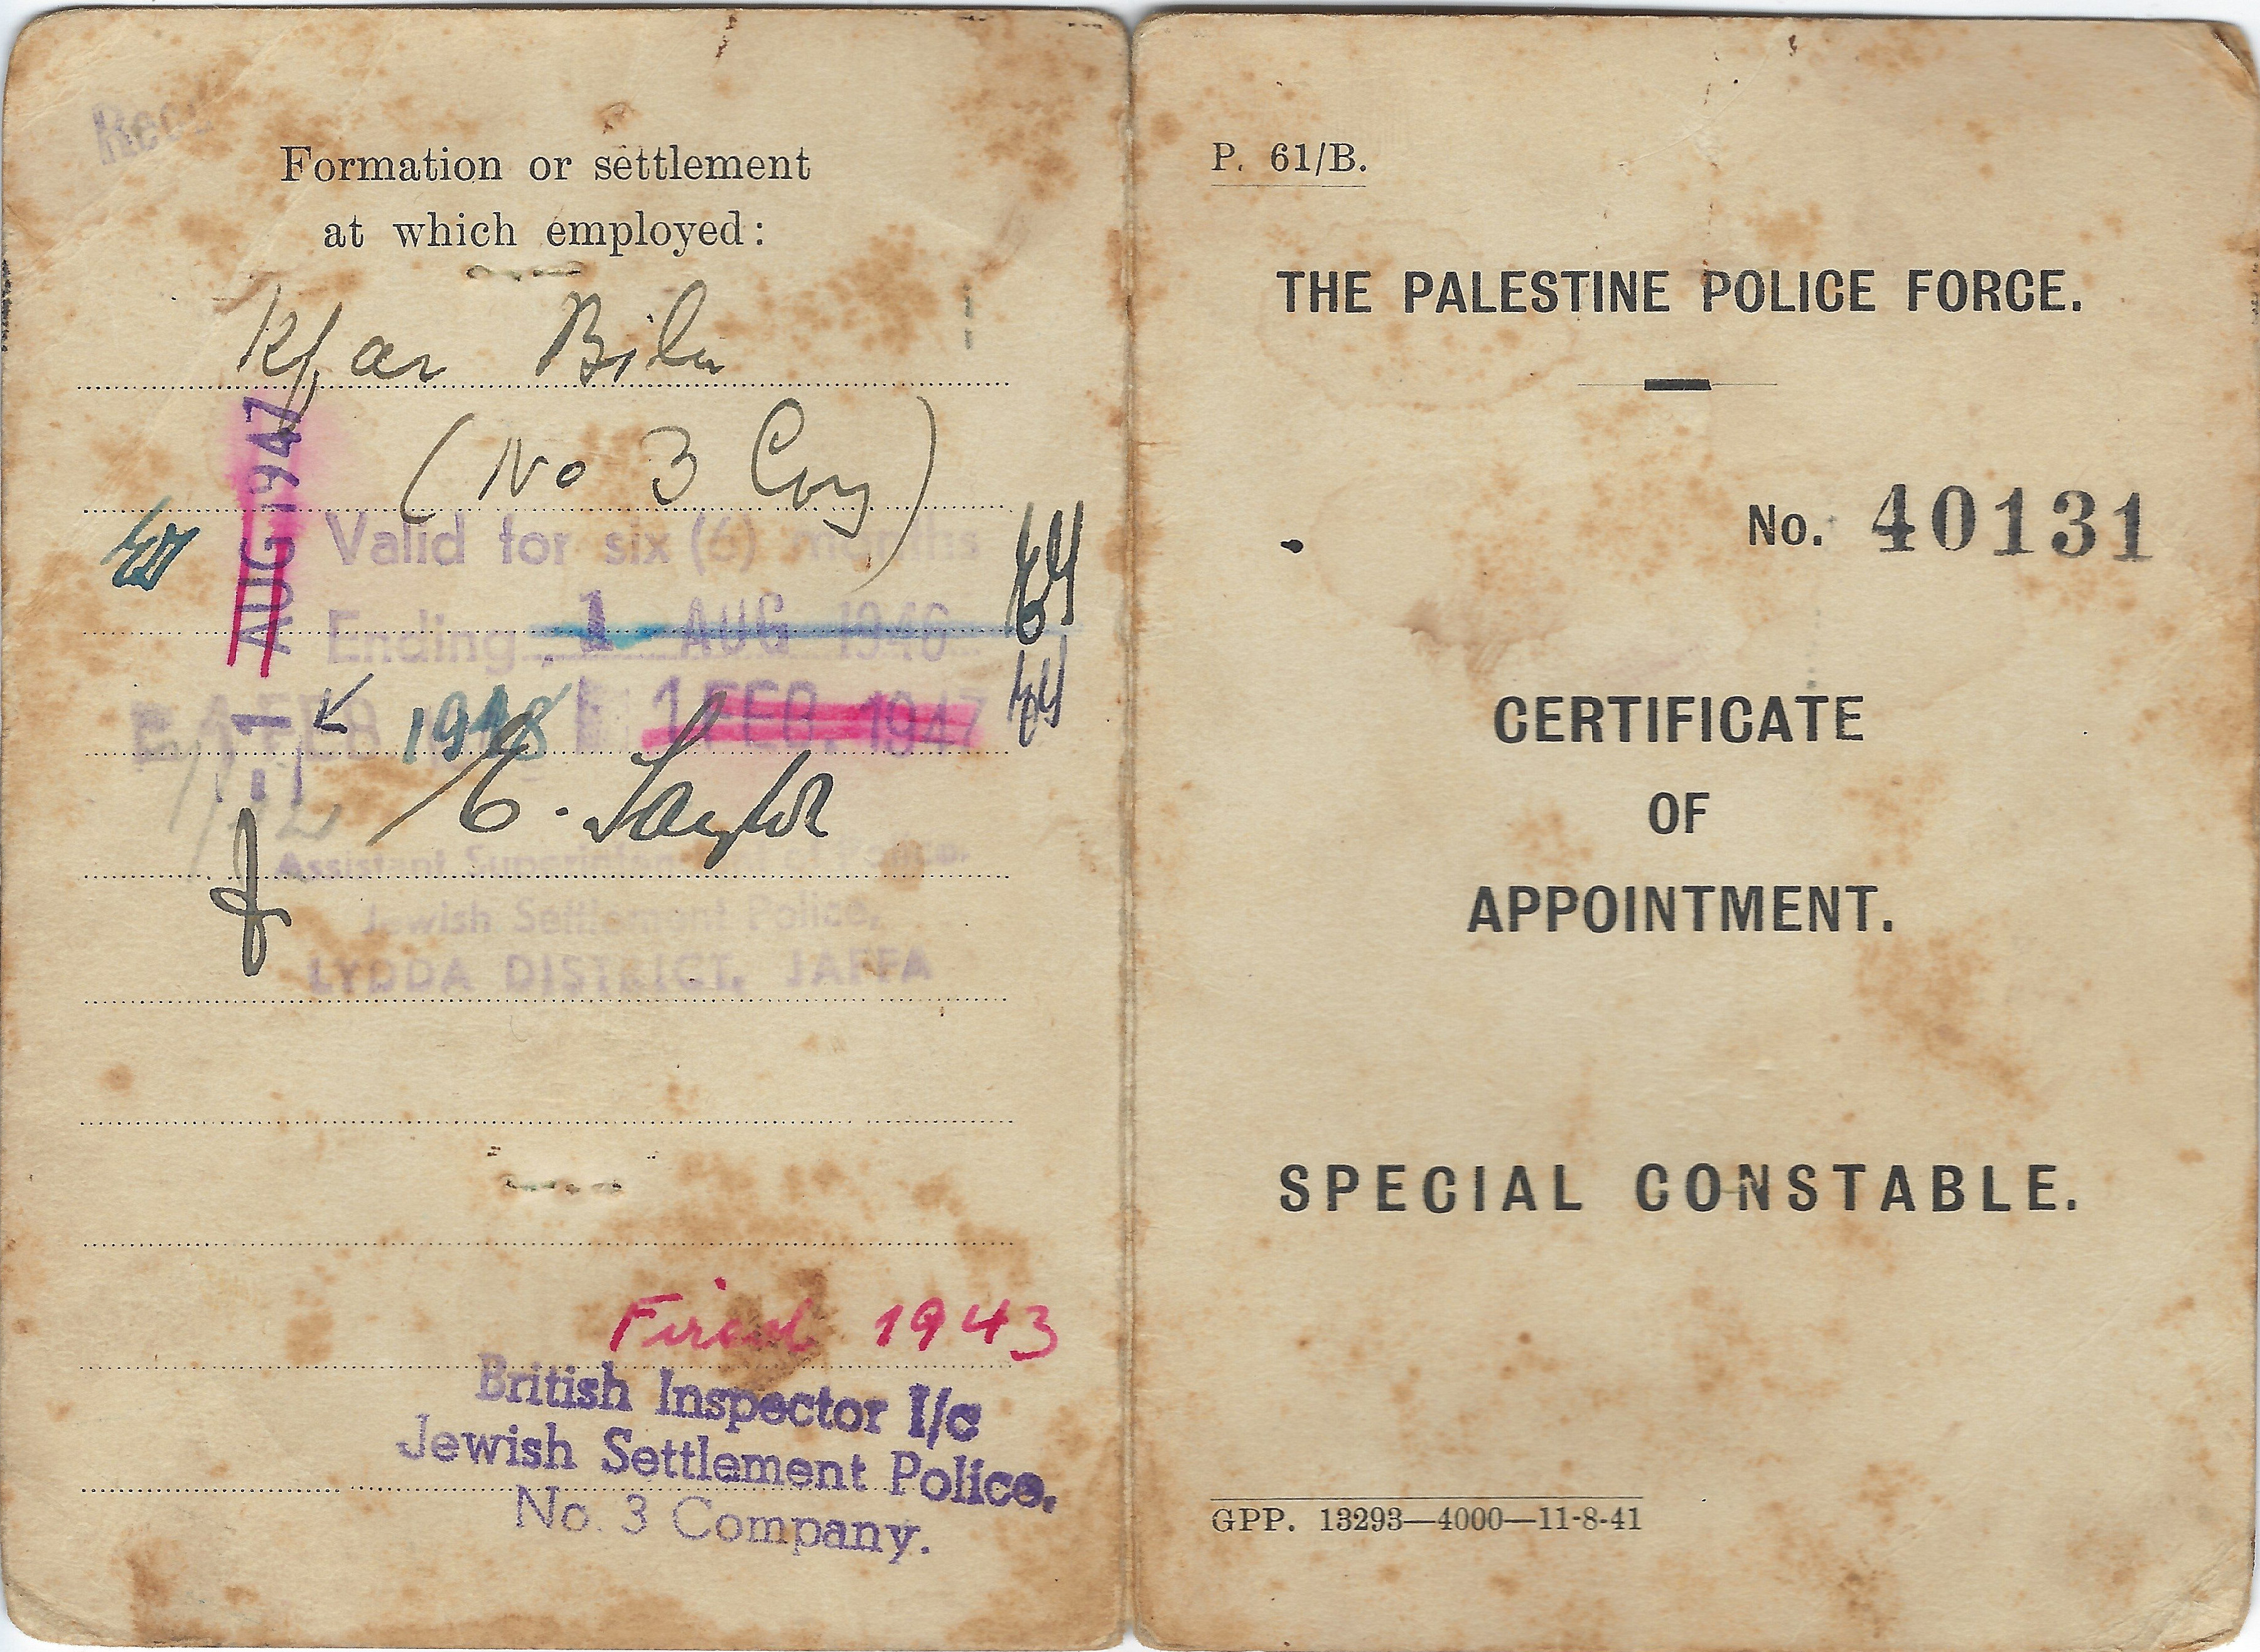 Formation or settlement
at which employed:
Kfar Bilu
(No 3 Coy)
Valid for six (6) months
Ending 1 AUG 1946
1 FEB 1948
1 FEB. 1947
1 AUG 1947
E. Taylor
Assistant Superintendent of Police.
Jewish Settlement Police,
LYDDA DISTRICT, JAFFA
Fired 1943
British Inspector I/c
Jewish Settlement Police.
No. 3 Company.
P. 61/B.
THE PALESTINE POLICE FORCE.
No. 40131
CERTIFICATE
OF
APPOINTMENT.
SPECIAL CONSTABLE.
GPP. 13293—4000—11-8-41